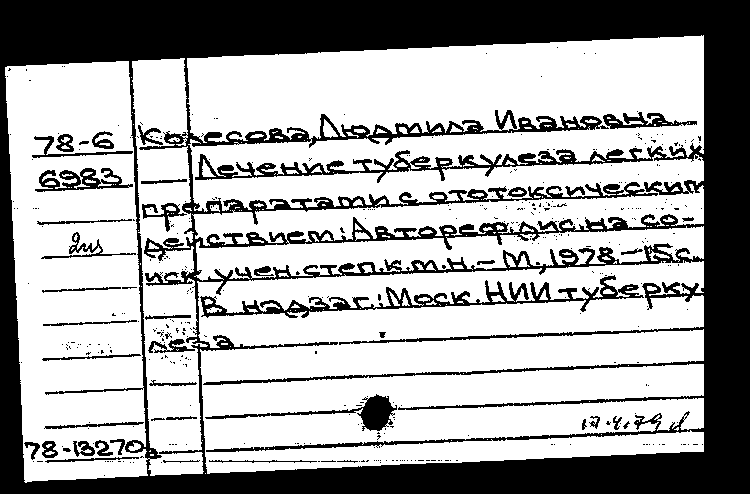 78-6 Колесова, Людмила Ивановна.
6983 Лечение туберкулеза легких
препаратами с ототоксическим
действием: Автореф. дис. на со-
иск. учен. степ. к.м.н. - М., 1978. - 15с.
В надзаг.: Моск. НИИ туберку-
леза.
78-13270